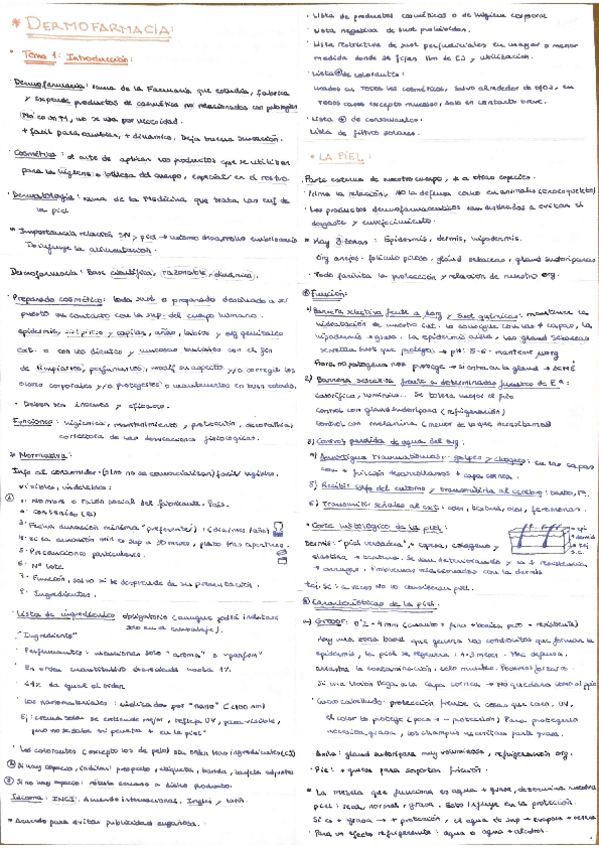 * DERMOFARMACIA:
• Tema 1: Introducción:
· Dermofarmacia: rama de la Farmacia que estudia, fabrica
y expende productos de cosmética no relacionados con patologías
No con M, no se usa por necesidad.
+ facil para cambiar, + dinamico. Deja buena sensación.
· Cosmética: el arte de aplicar los productos que se utilizan
para la higiene o belleza del cuerpo, especial en el rostro.
· Dermatología: rama de la Medicina que trata las enf de
la piel
* Importancia relación SN y piel → mismo desarrollo embrionario
Influye la alimentación.
Dermofarmacia: Base científica, razonable,
· Preparado cosmético: toda sust o preparado destinado a ser
puesto en contacto con la sup. del cuerpo humano.
epidermis, s. piloso y capilar, uñas, labios y org genitales
ext. o con los dientes y mucosas bucales con el fin
de limpiarlos, perfumarlos, modif su aspecto y/o corregir los
olores corporales y/o protegerlos o mantenerlos en buen estado.
· Deben ser inocuos y eficaces.
Funciones: higienica, mantenimiento y protección, decorativa,
correctora de las desviaciones fisiologicas.
* Normativa:
Info al consumidor (si no no se comercializan) facil legible,
visibles, indelebles:
1· Nombre o razón social del fabricante. País.
2· Contenido
3· Fecha duración mínima "preferente" (mes/año)
4· Si la duración min es sup a 30 meses, plazo tras apertura.
5· Precauciones particulares
6· Nº lote
7· Función, salvo si se desprende de su presentación.
8· Ingredientes.
· Lista de ingredientes obligatorio (aunque podrá indicarse
solo en el embalaje).
· "Ingredients"
· Perfumantes: menciones solo "aroma" o "parfum"
· En orden cuantitativo decreciente hasta 1%
· <1% da igual el orden
· Los nanomateriales: indicados por "nano" (<100 nm)
Ej: crema solar se extiende mejor, refleja UV, pasa visible,
pero no se sabe si penetra + en la piel"
· Los colorantes (excepto los de pelo) van detrás tras ingredientes (CI)
Si hay espacio, indicar: prospecto, etiqueta, banda, tarjeta adjuntos
Si no hay espacio: rótulo cercano a dicho producto.
Idioma: INCI. Acuerdo internacional. Inglés y latín.
* Acuerdo para evitar publicidad engañosa.
· Lista de productos cosméticos o de higiene corporal
· Lista negativa de sust prohibidas.
· Lista restrictiva de sust perjudiciales en mayor o menor
medida donde se fijan lim de [ ] y utilización.
· Lista + de colorantes:
usados en todos los cosméticos, salvo alrededor de ojos, en
todos casos excepto mucosas, solo en contacto breve.
· Lista + de conservantes.
Lista de filtros solares.
* LA PIEL:
Parte externa de nuestro cuerpo, ≠ a otras especies.
· Prima la relación, no la defensa como en animales (exoesqueleto)
· Los productos dermofarmaceuticos van destinados a evitar el
desgaste y envejecimiento.
* Hay 3 zonas: Epidermis, dermis, hipodermis.
Org anejos: foliculo piloso, gland sebaceas, gland sudoriparas
· Todo facilita la protección y relación de nuestro org.
Función:
1) Barrera selectiva frente a org y sust químicas: mantiene la
hidratación de nuestro ext. Lo consigue con las + capas, la
hipodermis + grasa. La epidermis aisla, las gland sebaceas
secretan sust que protegen → pH: 5-6 · mantiene morg
flora no patogena nos protege
2) Barrera selectiva frente a determinadas fuentes de E:
calorífica, lumínica... Se tolera mejor el frío
control con gland sudoripara (refrigeración)
control con melanina (menor de la que necesitamos)
3) Control perdida de agua del org:
4) Amortigua traumatismos: golpes y choques: en las capas
con + fricción desarrollamos + capa cornea.
5) Recibir info del entorno y transmitirla al cerebro: tacto, Tª.
6) Transmitir señales al ext: olor, brillos, feromonas.
· Corte histológico de la piel:
epi
dermis
tej
s.c.
Dermis: "piel verdadera" + capas, colageno y
elastina → textura. Se van deteriorando y va ↓ resistencia
→ arrugas. Problemas relacionados con la dermis
tej. s: a veces no lo consideran piel.
Características de la piel:
a) Grosor: 0'2 - 4 mm (cuanto + fina + bonita pero - resistente)
Hay una zona basal que genera las celulitas que forman la
epidermis, la piel se regenera: 1-2 meses. Me defensa,
arrastra la contaminación, solo muertas. Podemos forzarlo.
Si una lesión llega a la capa cornea → No quedará como al ppio
· Cuero cabelludo: protección frente a cosas que caen, UV,
el color lo protege (poco → - protección) Para protegerlo
necesita grasa, los champus no evitan tanta grasa.
· Axila: gland sudoripara muy voluminosa, refrigeración org.
· Pie: + gruesa para soportar fricción.
* La mezcla que funciona es agua + grasa, determina nuestra
piel: seca, normal, grasa. Esto influye en la protección.
Si es + grasa → + protección, el agua
· Para un efecto refrigerante: agua o agua + alcohol.